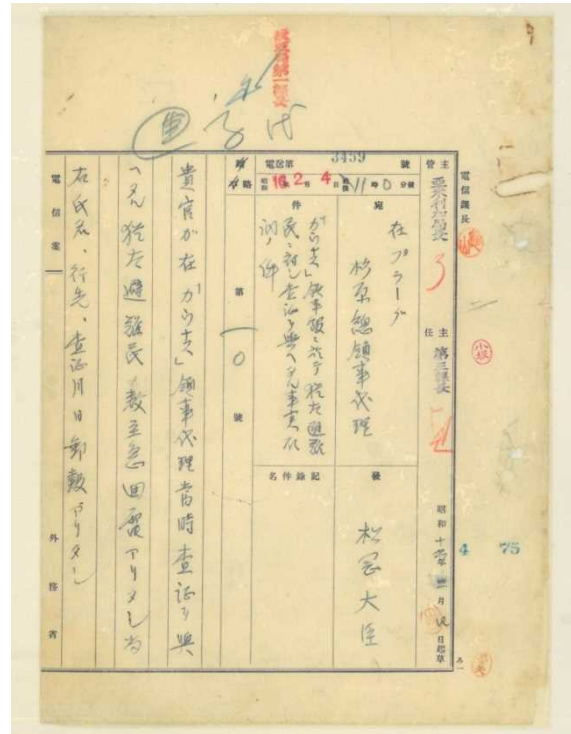 電信課長
主管 亜米利加局長
主任 第三課長
昭和十六年 月 日起草
4
75
電信第 3459 號
昭和 16年 2月 4日 後 時 0分發
宛 在プラーグ
杉原總領事代理
發 松岡大臣
件 「カウナス」領事館ニ於テ猶太避難
民ニ対シ査証ヲ與ヘタル事実
ノ件
記錄件名
第一〇號
貴官ガ在「カウナス」領事代理当時査証ヲ與
ヘタル猶太避難民数至急回電アリタシ尚
右氏名、行先、査証月日郵報アリタシ
電信案
外務省